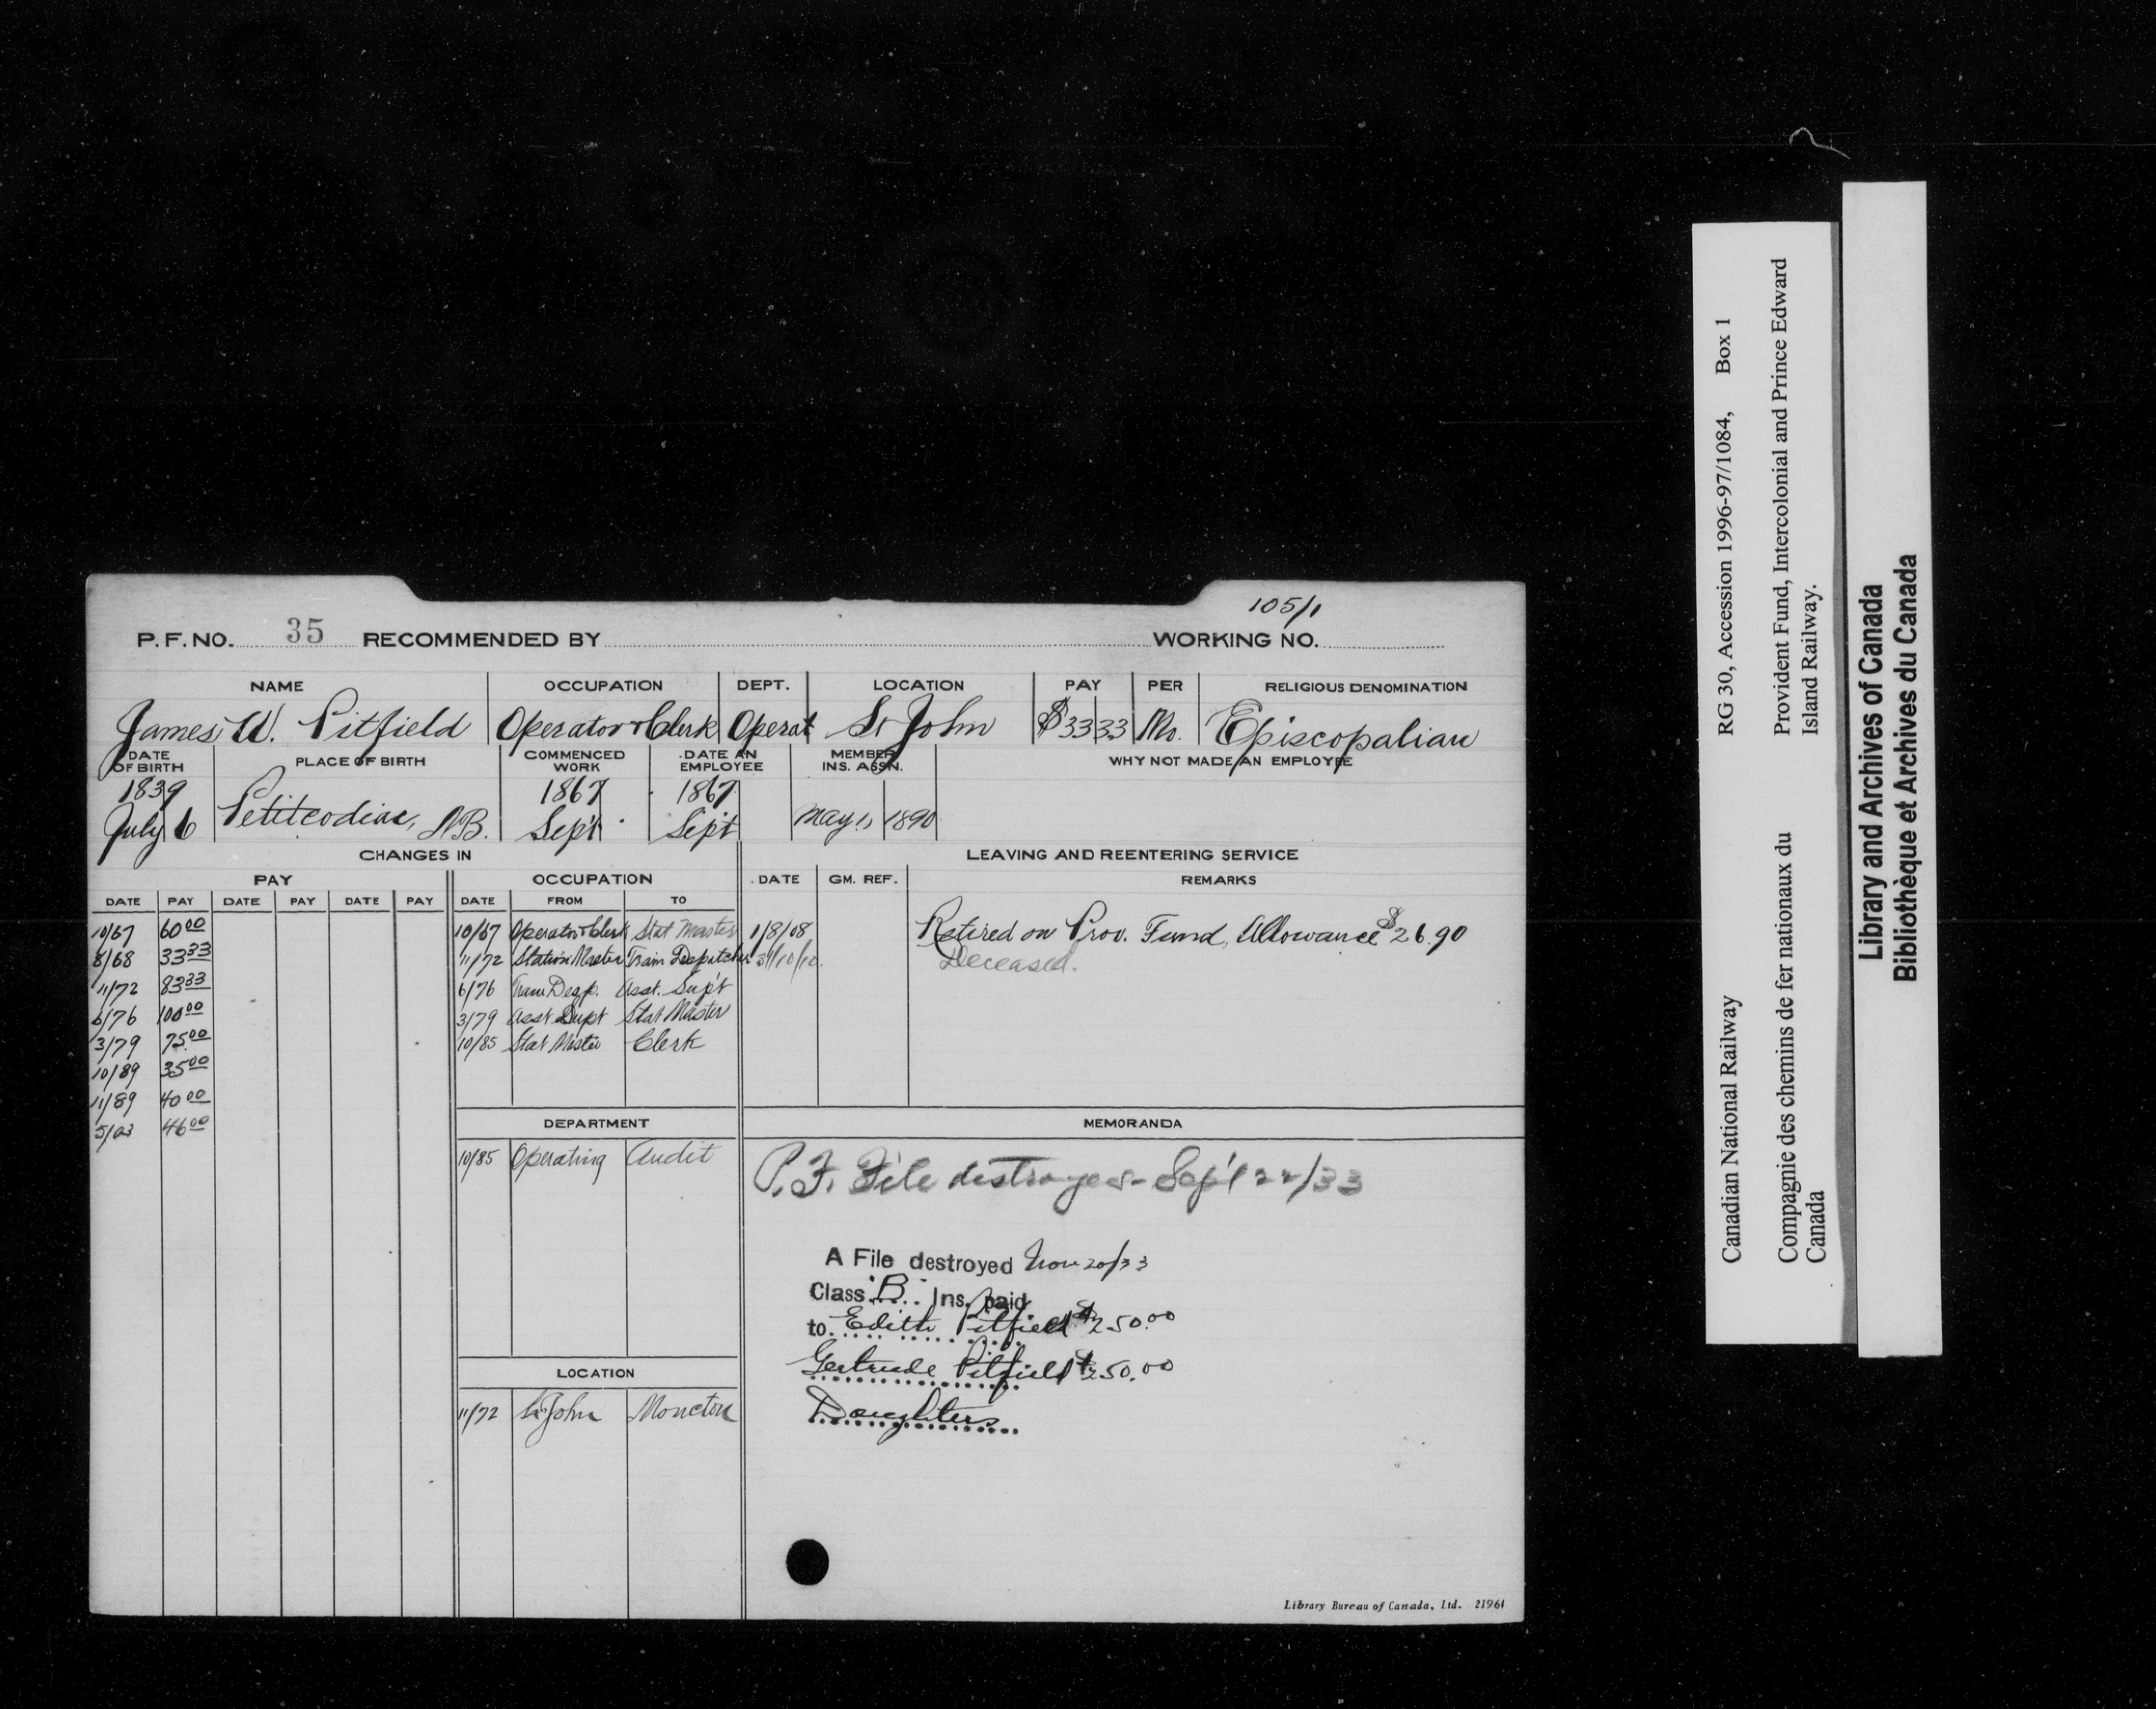 105/1
P.F. NO. 35 RECOMMENDED BY WORKING NO.
NAME OCCUPATION DEPT. LOCATION PAY PER RELIGIOUS DENOMINATION
James W. Pitfield Operator & Clerk Operat St John $33 33 Mo. Episcopalian
DATE OF BIRTH PLACE OF BIRTH COMMENCED WORK DATE AN EMPLOYEE MEMBER INS. ASSN. WHY NOT MADE AN EMPLOYEE
1839 1867 1867
July 6 Petitcodiac, N.B. Sept Sept May 1, 1890
CHANGES IN LEAVING AND REENTERING SERVICE
PAY OCCUPATION DATE GM. REF. REMARKS
DATE PAY DATE PAY DATE PAY DATE FROM TO
10/67 60 00 10/67 Operator & Clerk Stat Master 1/8/08 Retired on Prov. Fund, Allowance $26.90
8/68 33 33 11/72 Station Master Train Despatcher 31/10/10 Deceased.
11/72 83 33 6/76 Train Desp. Asst. Sup't
6/76 100 00 3/79 Asst Supt Stat Master
3/79 75.00 10/85 Stat Master Clerk
10/89 35 00
11/89 40 00
5/03 46 00
DEPARTMENT MEMORANDA
10/85 Operating Audit P.F. File destroyed - Sep't 22/33
A File destroyed Nov 20/33
Class "B" Ins. paid
to Edith Pitfield $250.00
Gertrude Pitfield $250.00
LOCATION Daughters
11/72 St John Moncton
Library Bureau of Canada, Ltd. 21964
Canadian National Railway RG 30, Accession 1996-97/1084, Box 1
Compagnie des chemins de fer nationaux du Provident Fund, Intercolonial and Prince Edward
Canada Island Railway.
Library and Archives of Canada
Bibliothèque et Archives du Canada